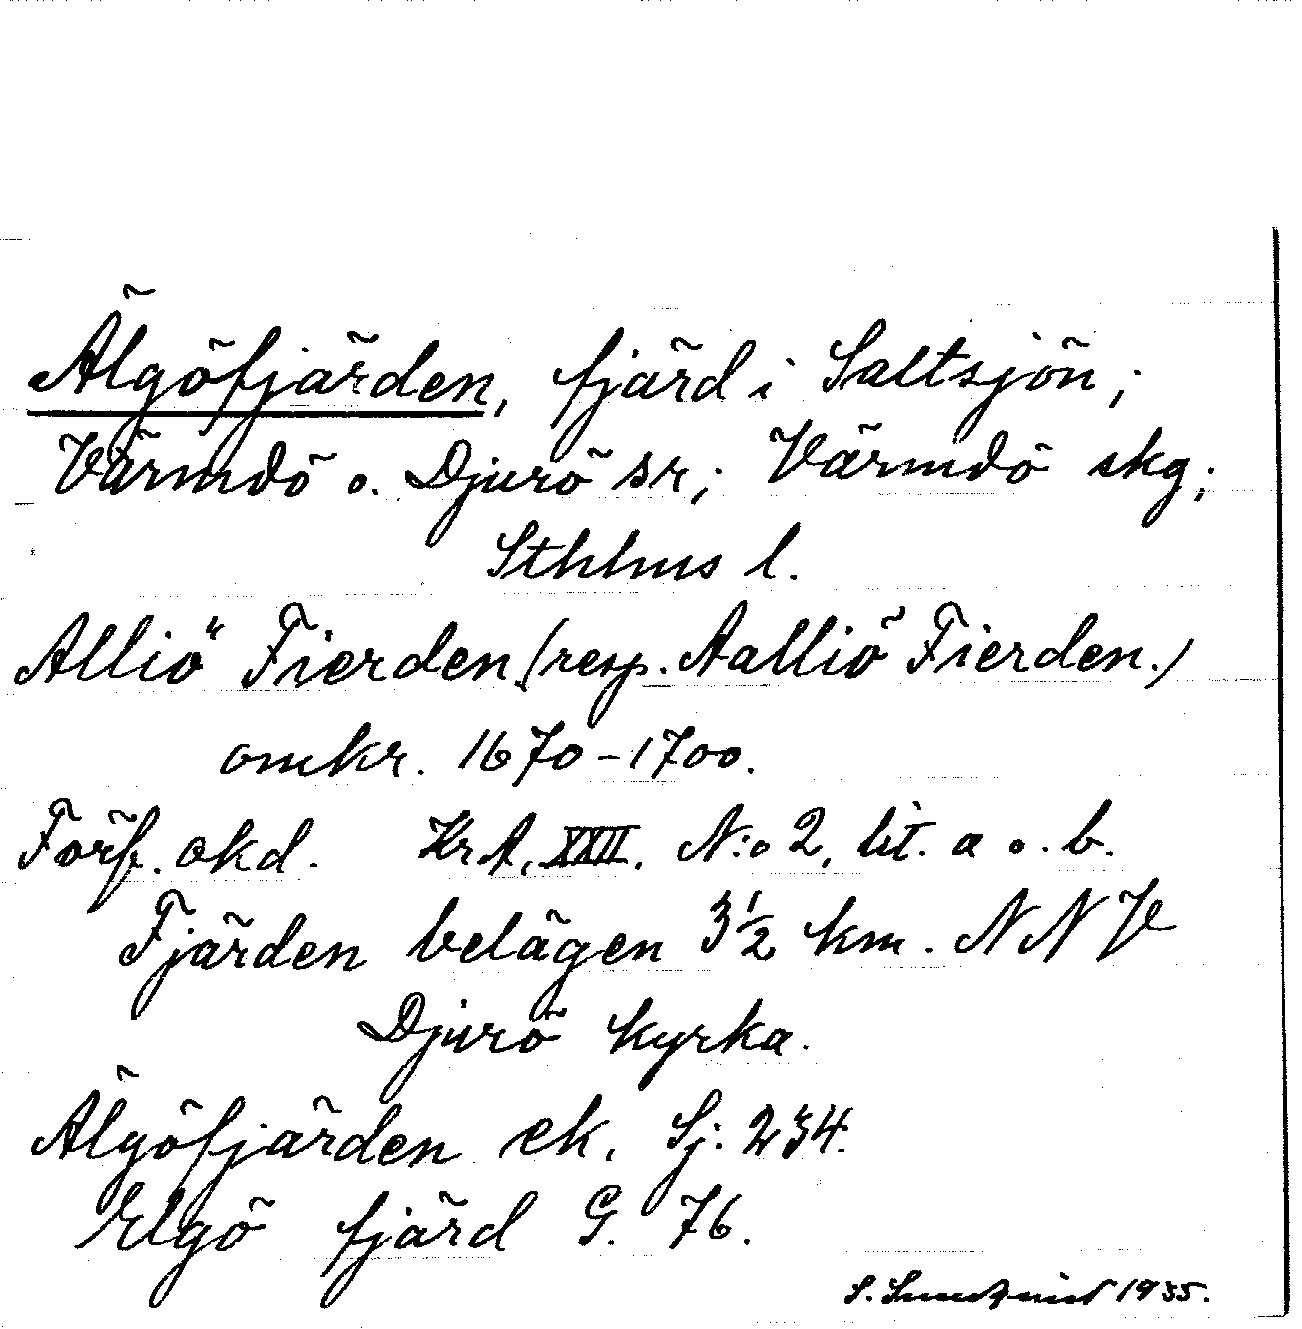 Älgöfjärden, fjärd i Saltsjön;
Värmdö o. Djurö sr; Värmdö skg;
Sthlms l.
Alliö Fierden (resp. Aalliö Fierden.)
omkr. 1670-1700.
Förf. okd. KrA, XXII. N:o 2, lit. a o. b.
Fjärden belägen 3 1/2 km. NNV
Djurö kyrka.
Älgöfjärden ek. Sj: 234.
Elgö fjärd G. 76.
S. 1935.